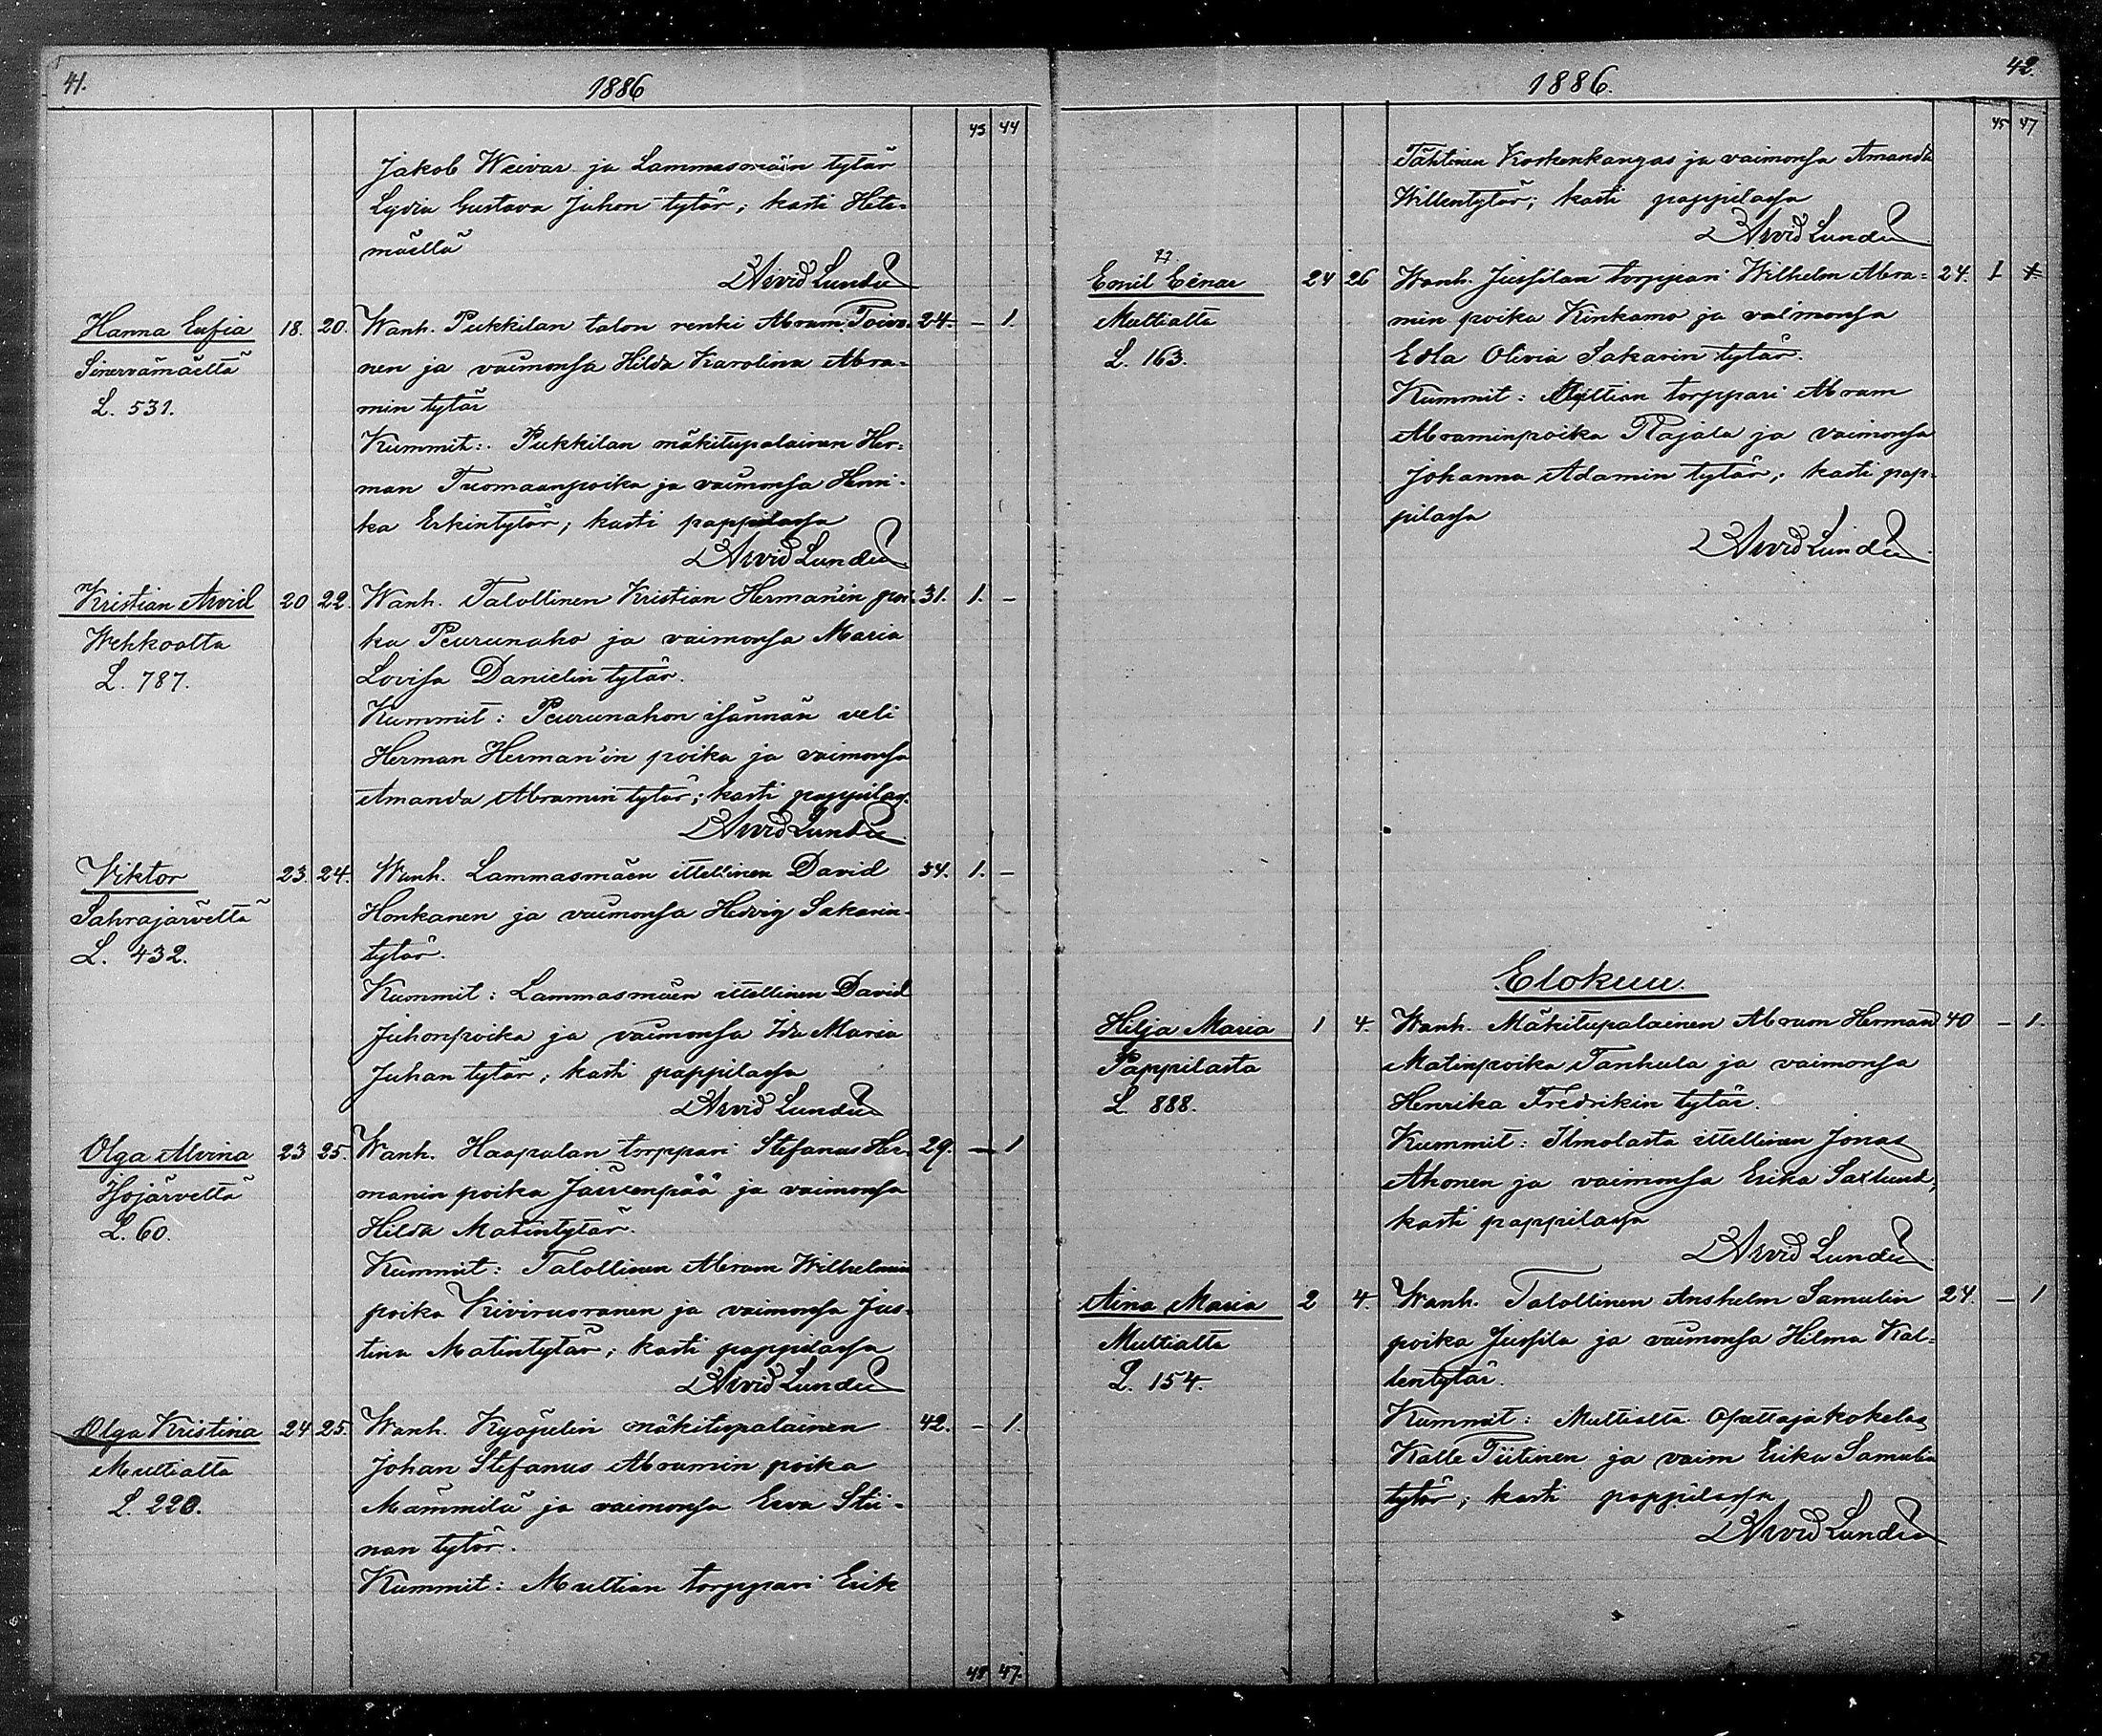 41.
1886
43 44
Jakob Weivar ja Lammasmäin tytär
Lydia Gustava Juhon tytär; kasti Hete-
mäellä
Arvid Lundén
Hanna Eufia 18. 20. Wanh. Pukkilan talon renki Abram Toivo- 24. – 1.
Sinervämäeltä nen ja vaimonsa Hilda Karolina Abra-
L. 531. min tytär
Kummit: Pukkilan mäkitupalainen Her-
man Tuomaanpoika ja vaimonsa Henri-
ka Erkintytär; kasti pappilassa
Arvid Lundén
Kristian Arvid 20 22. Wanh. Talollinen Kristian Herman'in poi- 31. 1. –
Wehkoolta ka Peurunaho ja vaimonsa Maria
L. 787. Lovisa Danielin tytär.
Kummit: Peurunahon isännän veli
Herman Herman'in poika ja vaimonsa
Amanda Abramin tytär; kasti pappilas.
Arvid Lundén
Viktor 23. 24. Wanh. Lammasmäen ittellinen David 34. 1. –
Sahrajärveltä Honkanen ja vaimonsa Hedvig Sakarin-
L. 432. tytär.
Kummit: Lammasmäen ittellinen David
Juhonpoika ja vaimonsa Ida Maria
Juhan tytär; kasti pappilassa
Arvid Lundén
Olga Alvina 23 25. Wanh. Haapalan torppari Stefanus Her- 29. – 1
Isojärveltä manin poika Järvenpää ja vaimonsa
L. 60. Hilda Matintytär.
Kummit: Talollinen Abram Wilhelmin
poika Kiviruoranen ja vaimonsa Jus-
tina Matintytär; kasti pappilassa
Arvid Lundén
Olga Kristina 24 25. Wanh. mäkitupalainen 42. – 1.
Multialta Johan Stefanus Abramin poika
L. 220. Mämmilä ja vaimonsa Eeva Stii-
nan tytär.
Kummit: Multian torppari Erik
47.
42.
1886.
45 47
Tähtinen Koskenkangas ja vaimonsa Amanda
Willentytär; kasti pappilassa
Arvid Lundén
Emil Einar 24 26 Wanh. Jussilan torppari Wilhelm Abra- 24. 1
Multialta min poika Kinkamo ja vaimonsa
L. 163. Edla Olivia Sakarin tytär.
Kummit: Multian torppari Abram
Abraminpoika Rajala ja vaimonsa
Johanna Adamin tytär; kasti pap-
pilassa
Arvid Lundén
Elokuu
Hilja Maria 1 4. Wanh. Mäkitupalainen Abram Herman 40 – 1.
Pappilasta Matinpoika Tanhula ja vaimonsa
L. 888. Henrika Fredrikin tytär.
Kummit: Ilmolasta ittellinen Jonas
Ahonen ja vaimonsa Erika Saxlund;
kasti pappilassa
Arvid Lundén
Aina Maria 2 4. Wanh. Talollinen Anshelm Samulin 24. – 1
Multialta poika Jussila ja vaimonsa Hilma Kal-
L. 154. lentytär.
Kummit: Multialta Opettajakokelas
Kalle Tiitinen ja vaim Erika Samulin
tytär; kasti pappilassa
Arvid Lundén